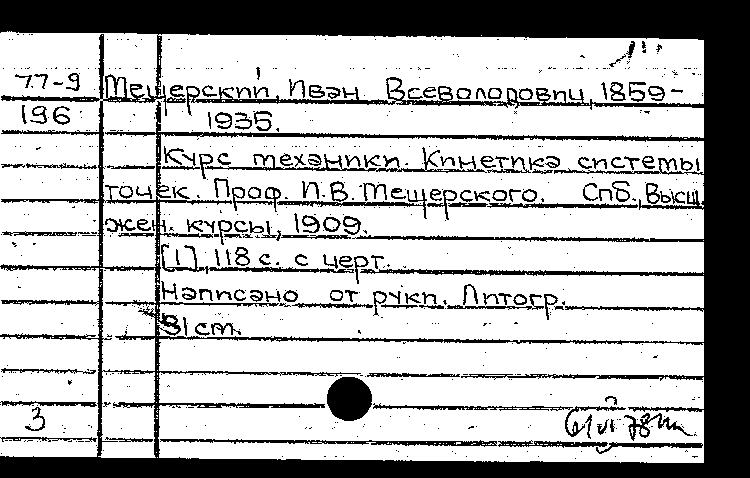 77-9 Мещерский, Иван Всеволодович, 1859-
196 1935.
Курс механики. Кинетика системы
точек. Проф. И.В. Мещерского. Спб., Высш.
жен. курсы, 1909.
[1], 118 с. с черт.
Написано от руки. Литогр.
31 cm.
3